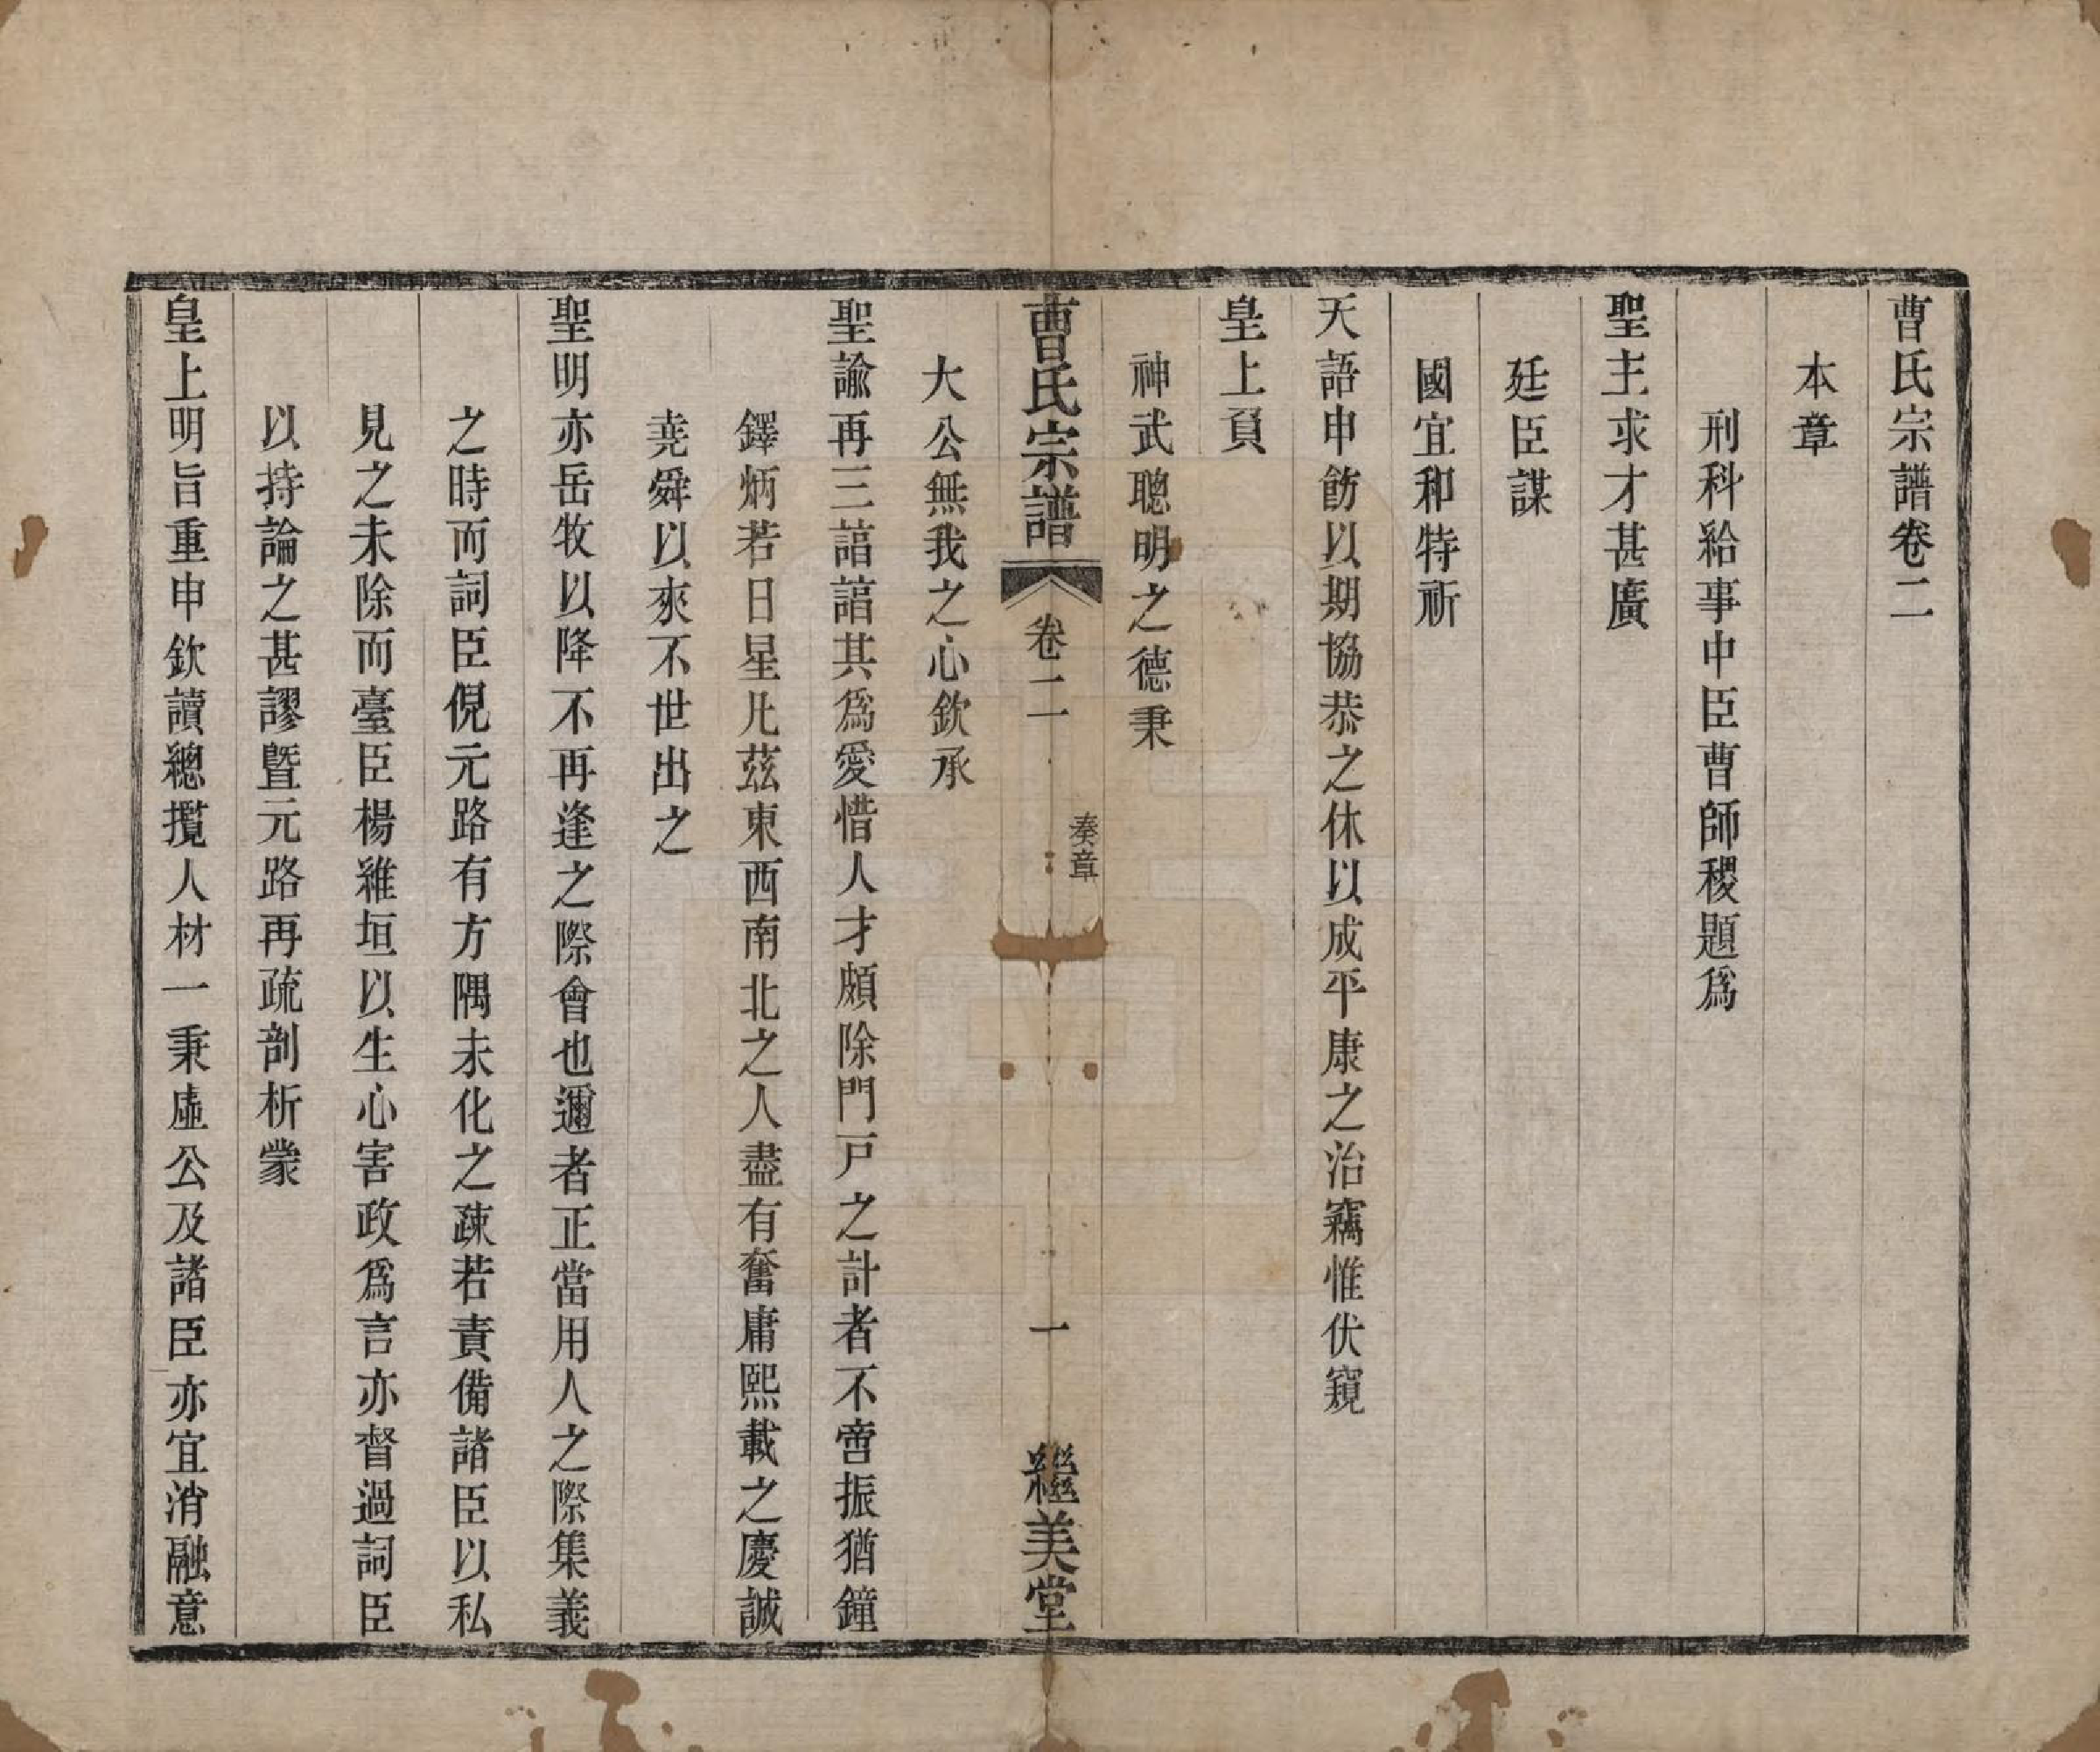 曹氏宗譜卷二
本章
刑科給事中臣曹師稷題爲
聖主求才甚廣
廷臣謀
國宜和特祈
天語申飭以期協恭之休以成平康之治竊惟伏窺
皇上負
神武聰明之德秉
曹氏宗譜
卷二
奏章
一
繼美堂
大公無我之心欽承
聖諭再三諄諄其爲愛惜人才頗除門戸之計者不啻振猶鐘
鐸炳若日星凡茲東西南北之人盡有奮庸熙載之慶誠
堯舜以來不世出之
聖明亦岳牧以降不再逢之際會也邇者正當用人之際集義
之時而詞臣倪元路有方隅未化之疎若責備諸臣以私
見之未除而臺臣楊維垣以生心害政爲言亦督過詞臣
以持論之甚謬曁元路再疏剖析蒙
皇上明旨重申欽讀總攬人材一秉虛公及諸臣亦宜消融意